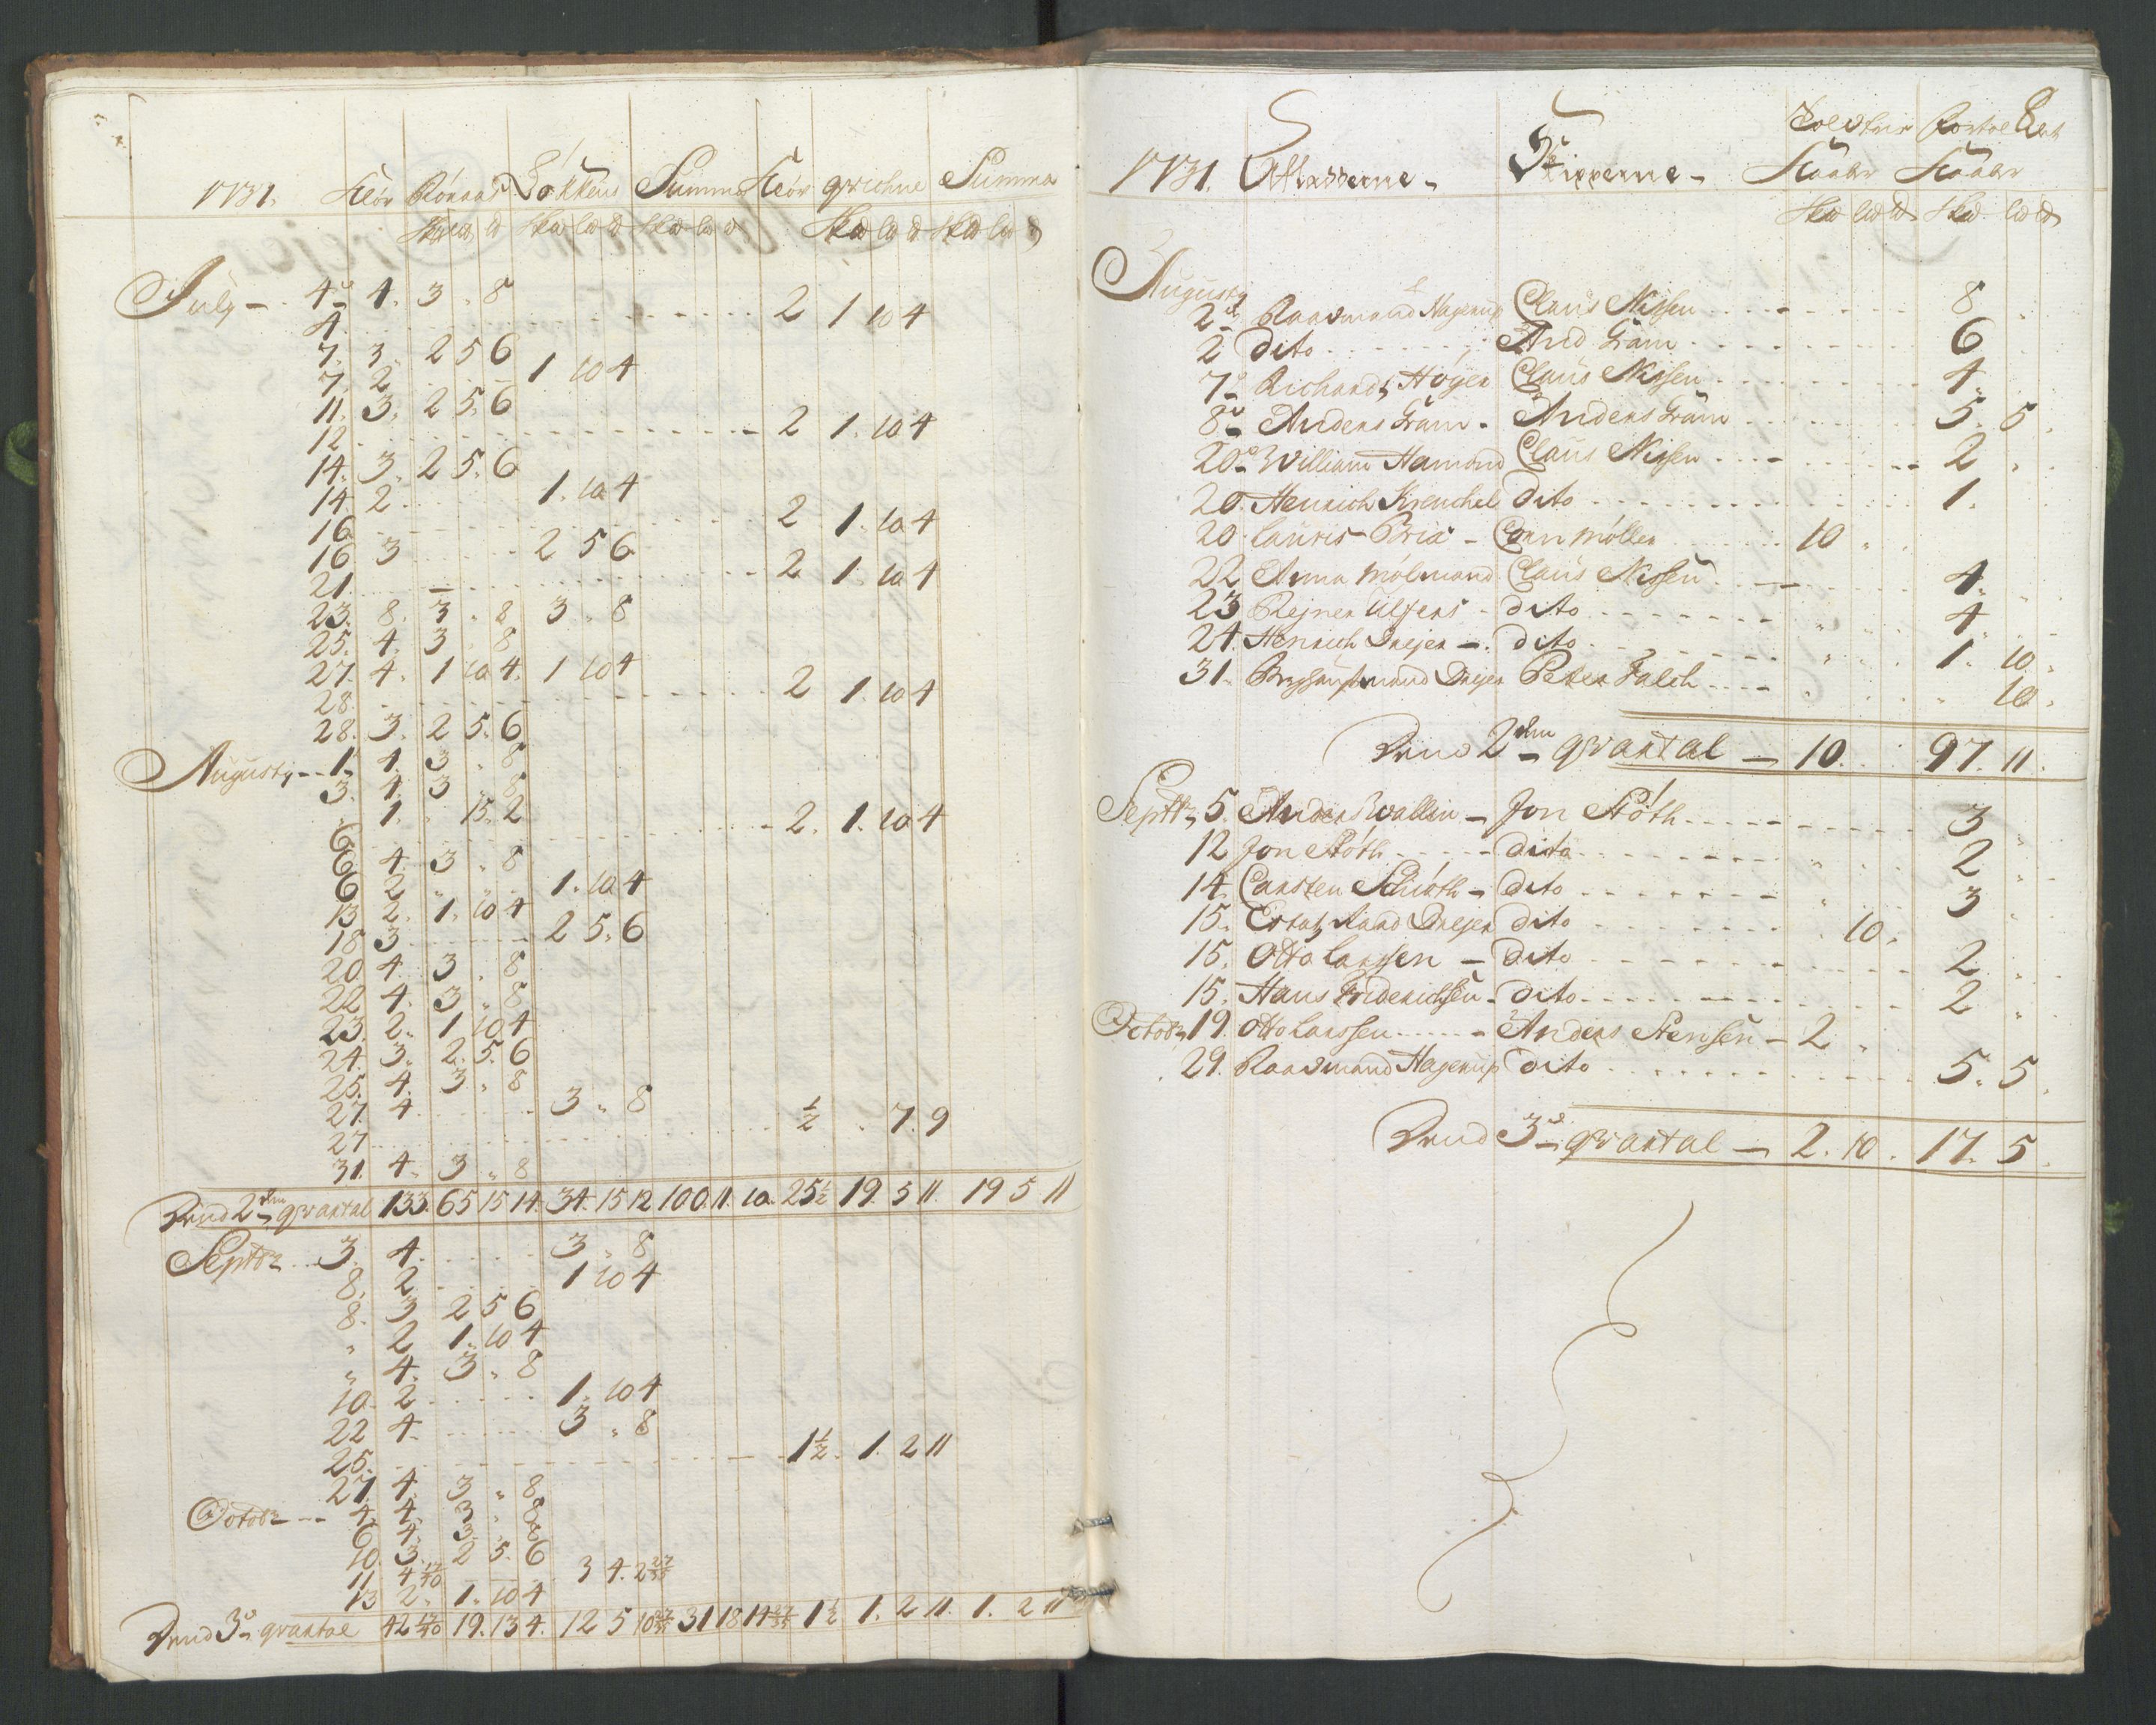 1731. Summa Summa
July - 4de 4. 3 „ 8
4 2 1 10 4
7. 3. 2 5 6
7. 2 1 10 4
11. 3. 2 5. 6
12 2 1. 10 4
14. 3. 2 5. 6
14 2 1. 10 4
16 2 1. 10 4
16 3 2 5 6
21. 2 1. 10 4
23. 8. 3 „ 8 3 „ 8
25. 4. 3 „ 8
27. 4. 1 10 4. 1 10 4
28. 2 1. 10 4
28. 3. 2 5. 6
Augusty - 1. 4. 3 „ 8
3. 4. 3 „ 8
„ 1. „ 15. 2
6 2. 1. 10 4
6 4. 3 „ 8
6 2 1. 10 4
13 2. 1. 10 4
18 3 2 5. 6
20 4. 3 „ 8
22 4. 3 „ 8
23. 2. 1 10 4
24. 3. 2. 5. 6
25. 4. 3 „ 8
27. 4 3 „ 8
27 ½ „ 7. 9
31. 4. 3 „ 8
2den qvartal 133. 65 15 14. 34. 15 12 100. 11. 10. 25½ 19. 5 11. 19 5 11
Septbr 3. 4. 3 „ 8
8. 2 1 10 4
8. 3 2 5 6
„ 2 1. 10 4
„ 4. 3 „ 8
10. 2 1. 10 4
22 4. 3 „ 8
25. 1½. 1. 2 11
27. 4. 3 „ 8
Octobr 4. 4. 3 „ 8
6 4. 3 „ 8
10. 3. 2 5. 6
11 4 17/40 3 4. 2 27/35
13 2. 1. 10 4
3de qvartal 42 17/40 19. 13 4. 12 5 10 31 18 14 1½ 1. 2 11. 1. 2 11
1731. Skipperne -
Augusty
2de Raadmand Hagerup Claus Nissen 8
2 dito And Gram 6
7de Richard Höyer Claus Nissen 4.
8de Anders Gram - Anders Gram 5. 5.
20de William Hamond Claus Nissen 2
20. Henrich Krenchel dito 1.
20. Lauris Brix - Conn Möller 10
22 Anna Mölmand Claus Nissen 4.
23 Rejner Ulfers - dito 4
24. Henrich Drejer - dito 1. 10.
31. Berghauptmand Drejer Peter Falch 10.
2den qvartal - 10. 97. 11.
Septbr 5. Anders Wallin - Jon Stöth 3
12 Jon Stöth dito 2
14. Carsten Schiöth - dito 3
15. Drejer dito 10.
15. Otto Larssen - dito 2
15. Hans Friderichsen - dito 2
Octobr 19. Otto Larssen Anders Stensen - 2
29. Raadmand Hagerup dito 5. 5.
3de qvartal - 2. 10. 17. 5.